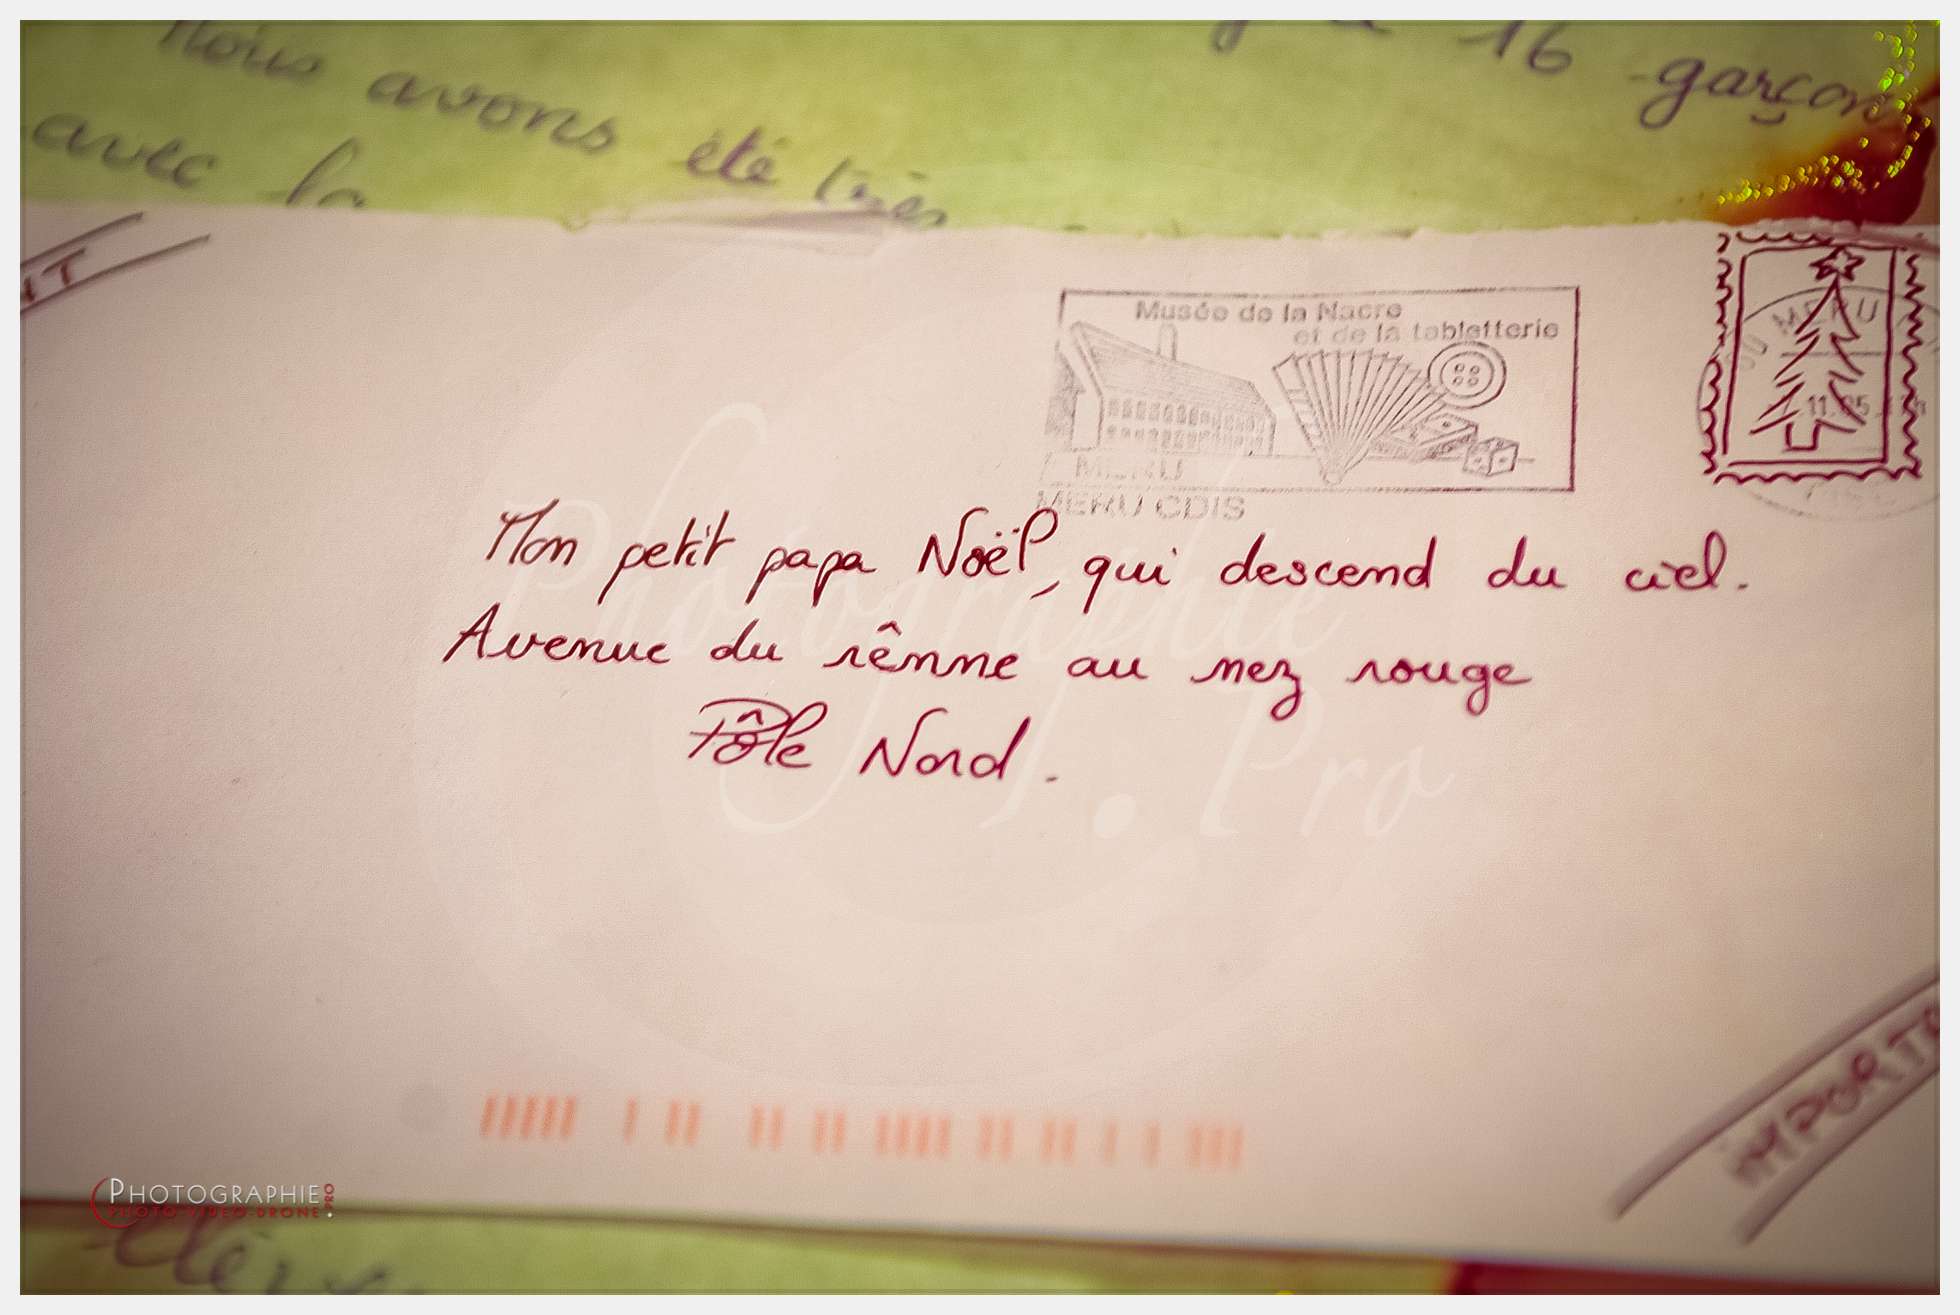 16 garçons
Nous avons été très
avec la
Musée de la Nacre
et de la tabletterie
MERU
11.05
MERU
MERU CDIS
Mon petit papa Noël, qui descend du ciel.
Avenue du rênne au nez rouge
Pôle Nord.
Photographie
.Pro
IMPORT
PHOTOGRAPHIE
.PRO
PHOTO-VIDEO-DRONE